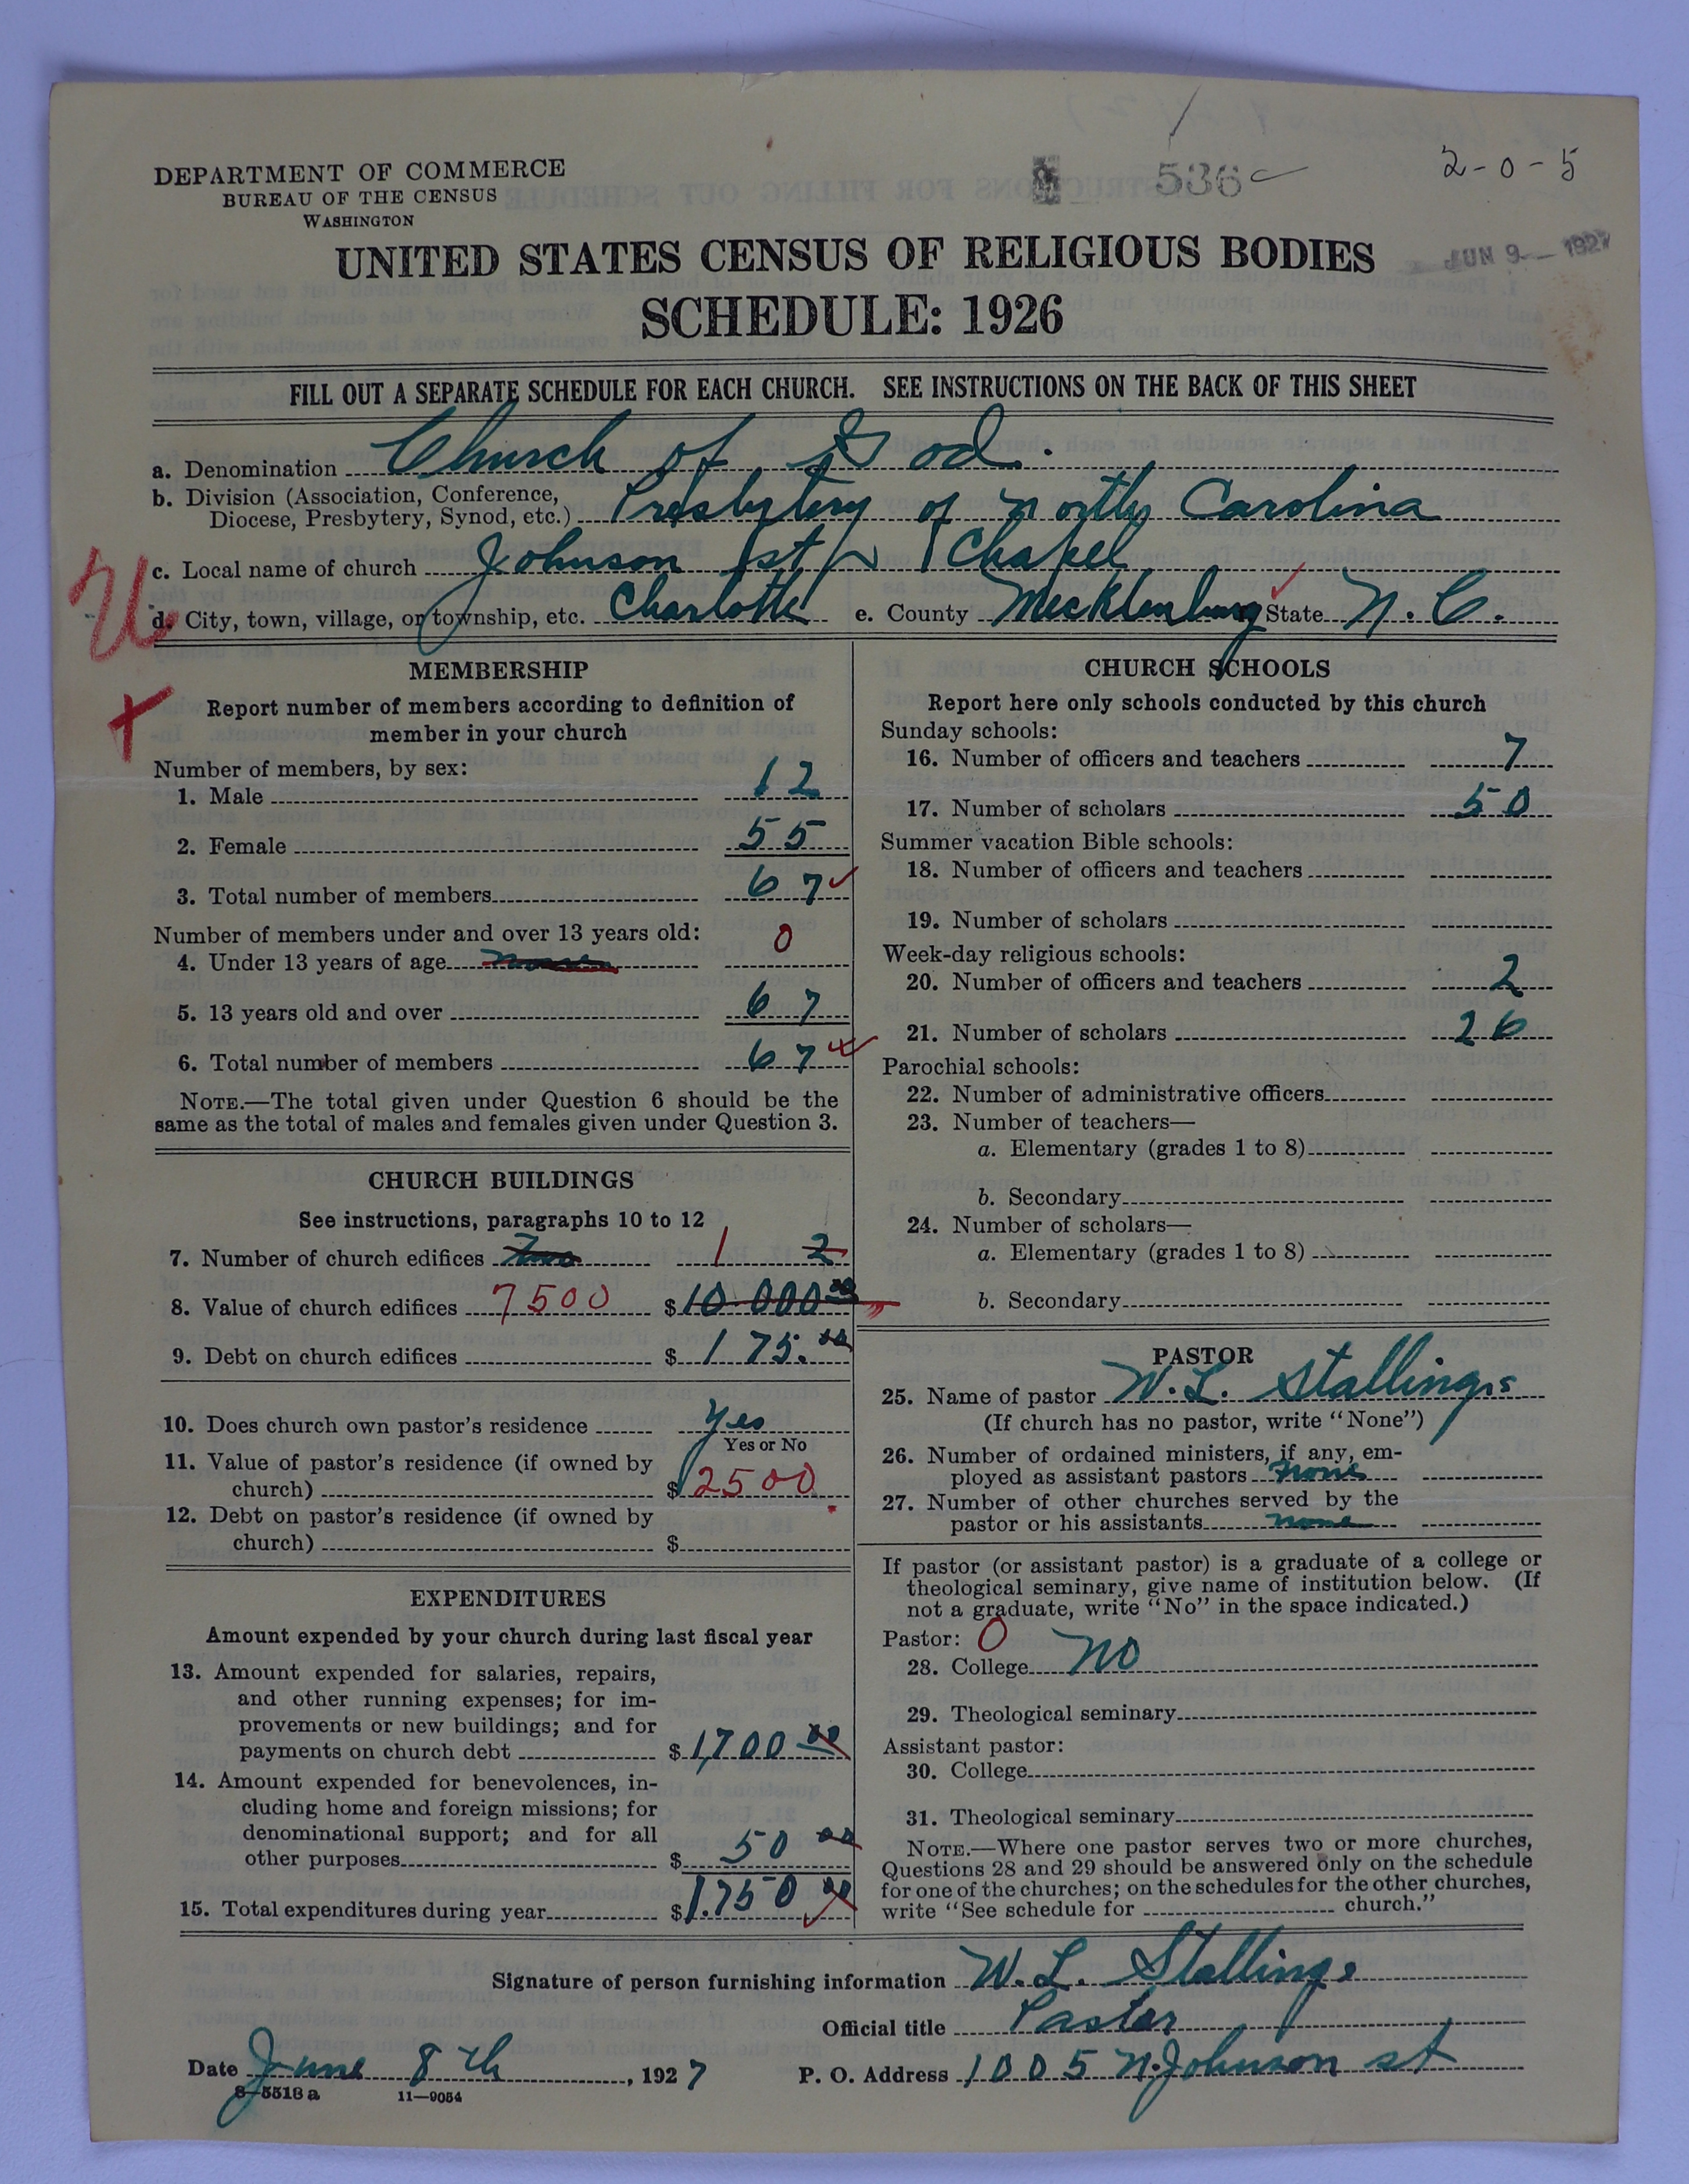 2-0-5
536
DEPARTMENT OF COMMERCE
BUREAU OF THE CENSUS
WASHINGTON
JUN 9 1927
UNITED STATES CENSUS OF RELIGIOUS BODIES
SCHEDULE: 1926
FILL OUT A SEPARATE SCHEDULE FOR EACH CHURCH. SEE INSTRUCTIONS ON THE BACK OF THIS SHEET
a. Denomination Church of God.
b. Division (Association, Conference,
Diocese, Presbytery, Synod, etc.) Presbytery of North Carolina
c. Local name of church Johnson st Chapel
d. City, town, village, or township, etc. Charlotte e. County Mecklenburg State N. C.
U
+
MEMBERSHIP
Report number of members according to definition of
member in your church
Number of members, by sex:
1. Male 12
2. Female 55
3. Total number of members 67
Number of members under and over 13 years old:
4. Under 13 years of age 0
5. 13 years old and over 67
6. Total number of members 67
NOTE.—The total given under Question 6 should be the
same as the total of males and females given under Question 3.
CHURCH BUILDINGS
See instructions, paragraphs 10 to 12
7. Number of church edifices Two 1 2
8. Value of church edifices 7500 $10 000 00
9. Debt on church edifices $175.00
10. Does church own pastor's residence Yes
Yes or No
11. Value of pastor's residence (if owned by
church) $2500
12. Debt on pastor's residence (if owned by
church) $
EXPENDITURES
Amount expended by your church during last fiscal year
13. Amount expended for salaries, repairs,
and other running expenses; for im-
provements or new buildings; and for
payments on church debt $1,700 00
14. Amount expended for benevolences, in-
cluding home and foreign missions; for
denominational support; and for all
other purposes $ 50 00
15. Total expenditures during year $1.750 00
CHURCH SCHOOLS
Report here only schools conducted by this church
Sunday schools:
16. Number of officers and teachers 7
17. Number of scholars 50
Summer vacation Bible schools:
18. Number of officers and teachers
19. Number of scholars
Week-day religious schools:
20. Number of officers and teachers 2
21. Number of scholars 26
Parochial schools:
22. Number of administrative officers
23. Number of teachers—
a. Elementary (grades 1 to 8)
b. Secondary
24. Number of scholars—
a. Elementary (grades 1 to 8)
b. Secondary
PASTOR
25. Name of pastor W. L. Stallings
(If church has no pastor, write "None")
26. Number of ordained ministers, if any, em-
ployed as assistant pastors none
27. Number of other churches served by the
pastor or his assistants none
If pastor (or assistant pastor) is a graduate of a college or
theological seminary, give name of institution below. (If
not a graduate, write "No" in the space indicated.)
Pastor: 0
28. College No
29. Theological seminary
Assistant pastor:
30. College
31. Theological seminary
NOTE.—Where one pastor serves two or more churches,
Questions 28 and 29 should be answered only on the schedule
for one of the churches; on the schedules for the other churches,
write "See schedule for church."
Signature of person furnishing information W. L. Stallings
Official title Pastor
Date June 8th, 1927 P. O. Address 1005 N. Johnson st
8-5518 a 11-9054